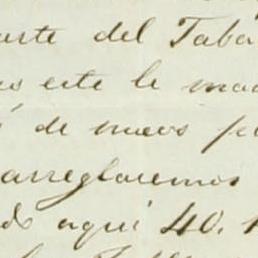 arte del Taba
es este le mad
de nuevo pa
arreglaremos
do aqui 40.